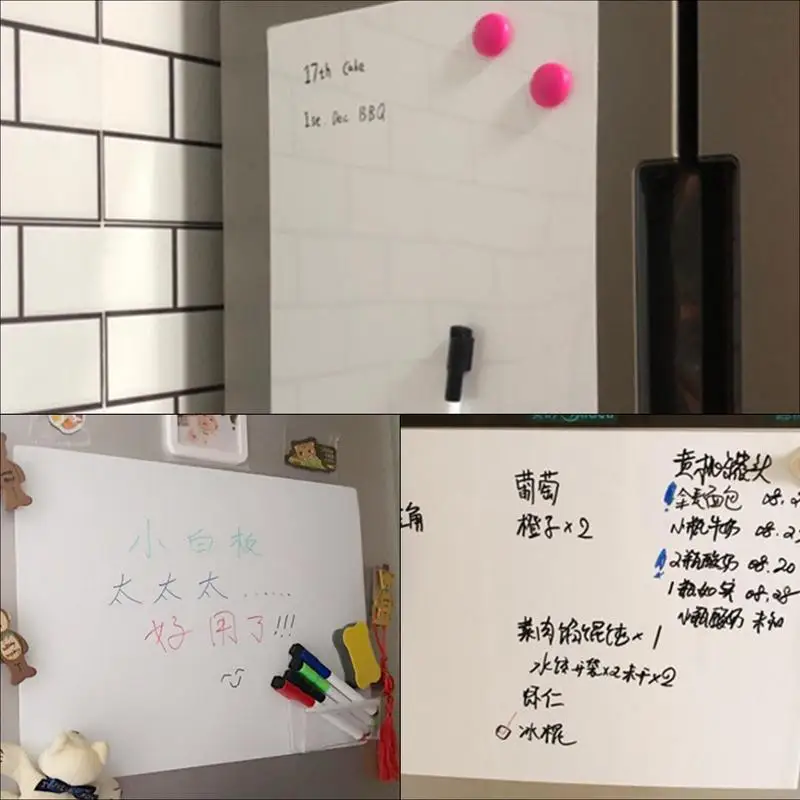 17th Cake
1se. Dec BBQ
小白板
太太太......
好用了!!!
葡萄
橙子×2
角
菜肉馅馄饨×1
水饺 ×2 ×2
虾仁
冰棍
黄桃罐头
全麦面包 08.2
小瓶牛奶 08.2
2瓶酸奶 08.20
1瓶 08.28
小瓶酸奶 未知